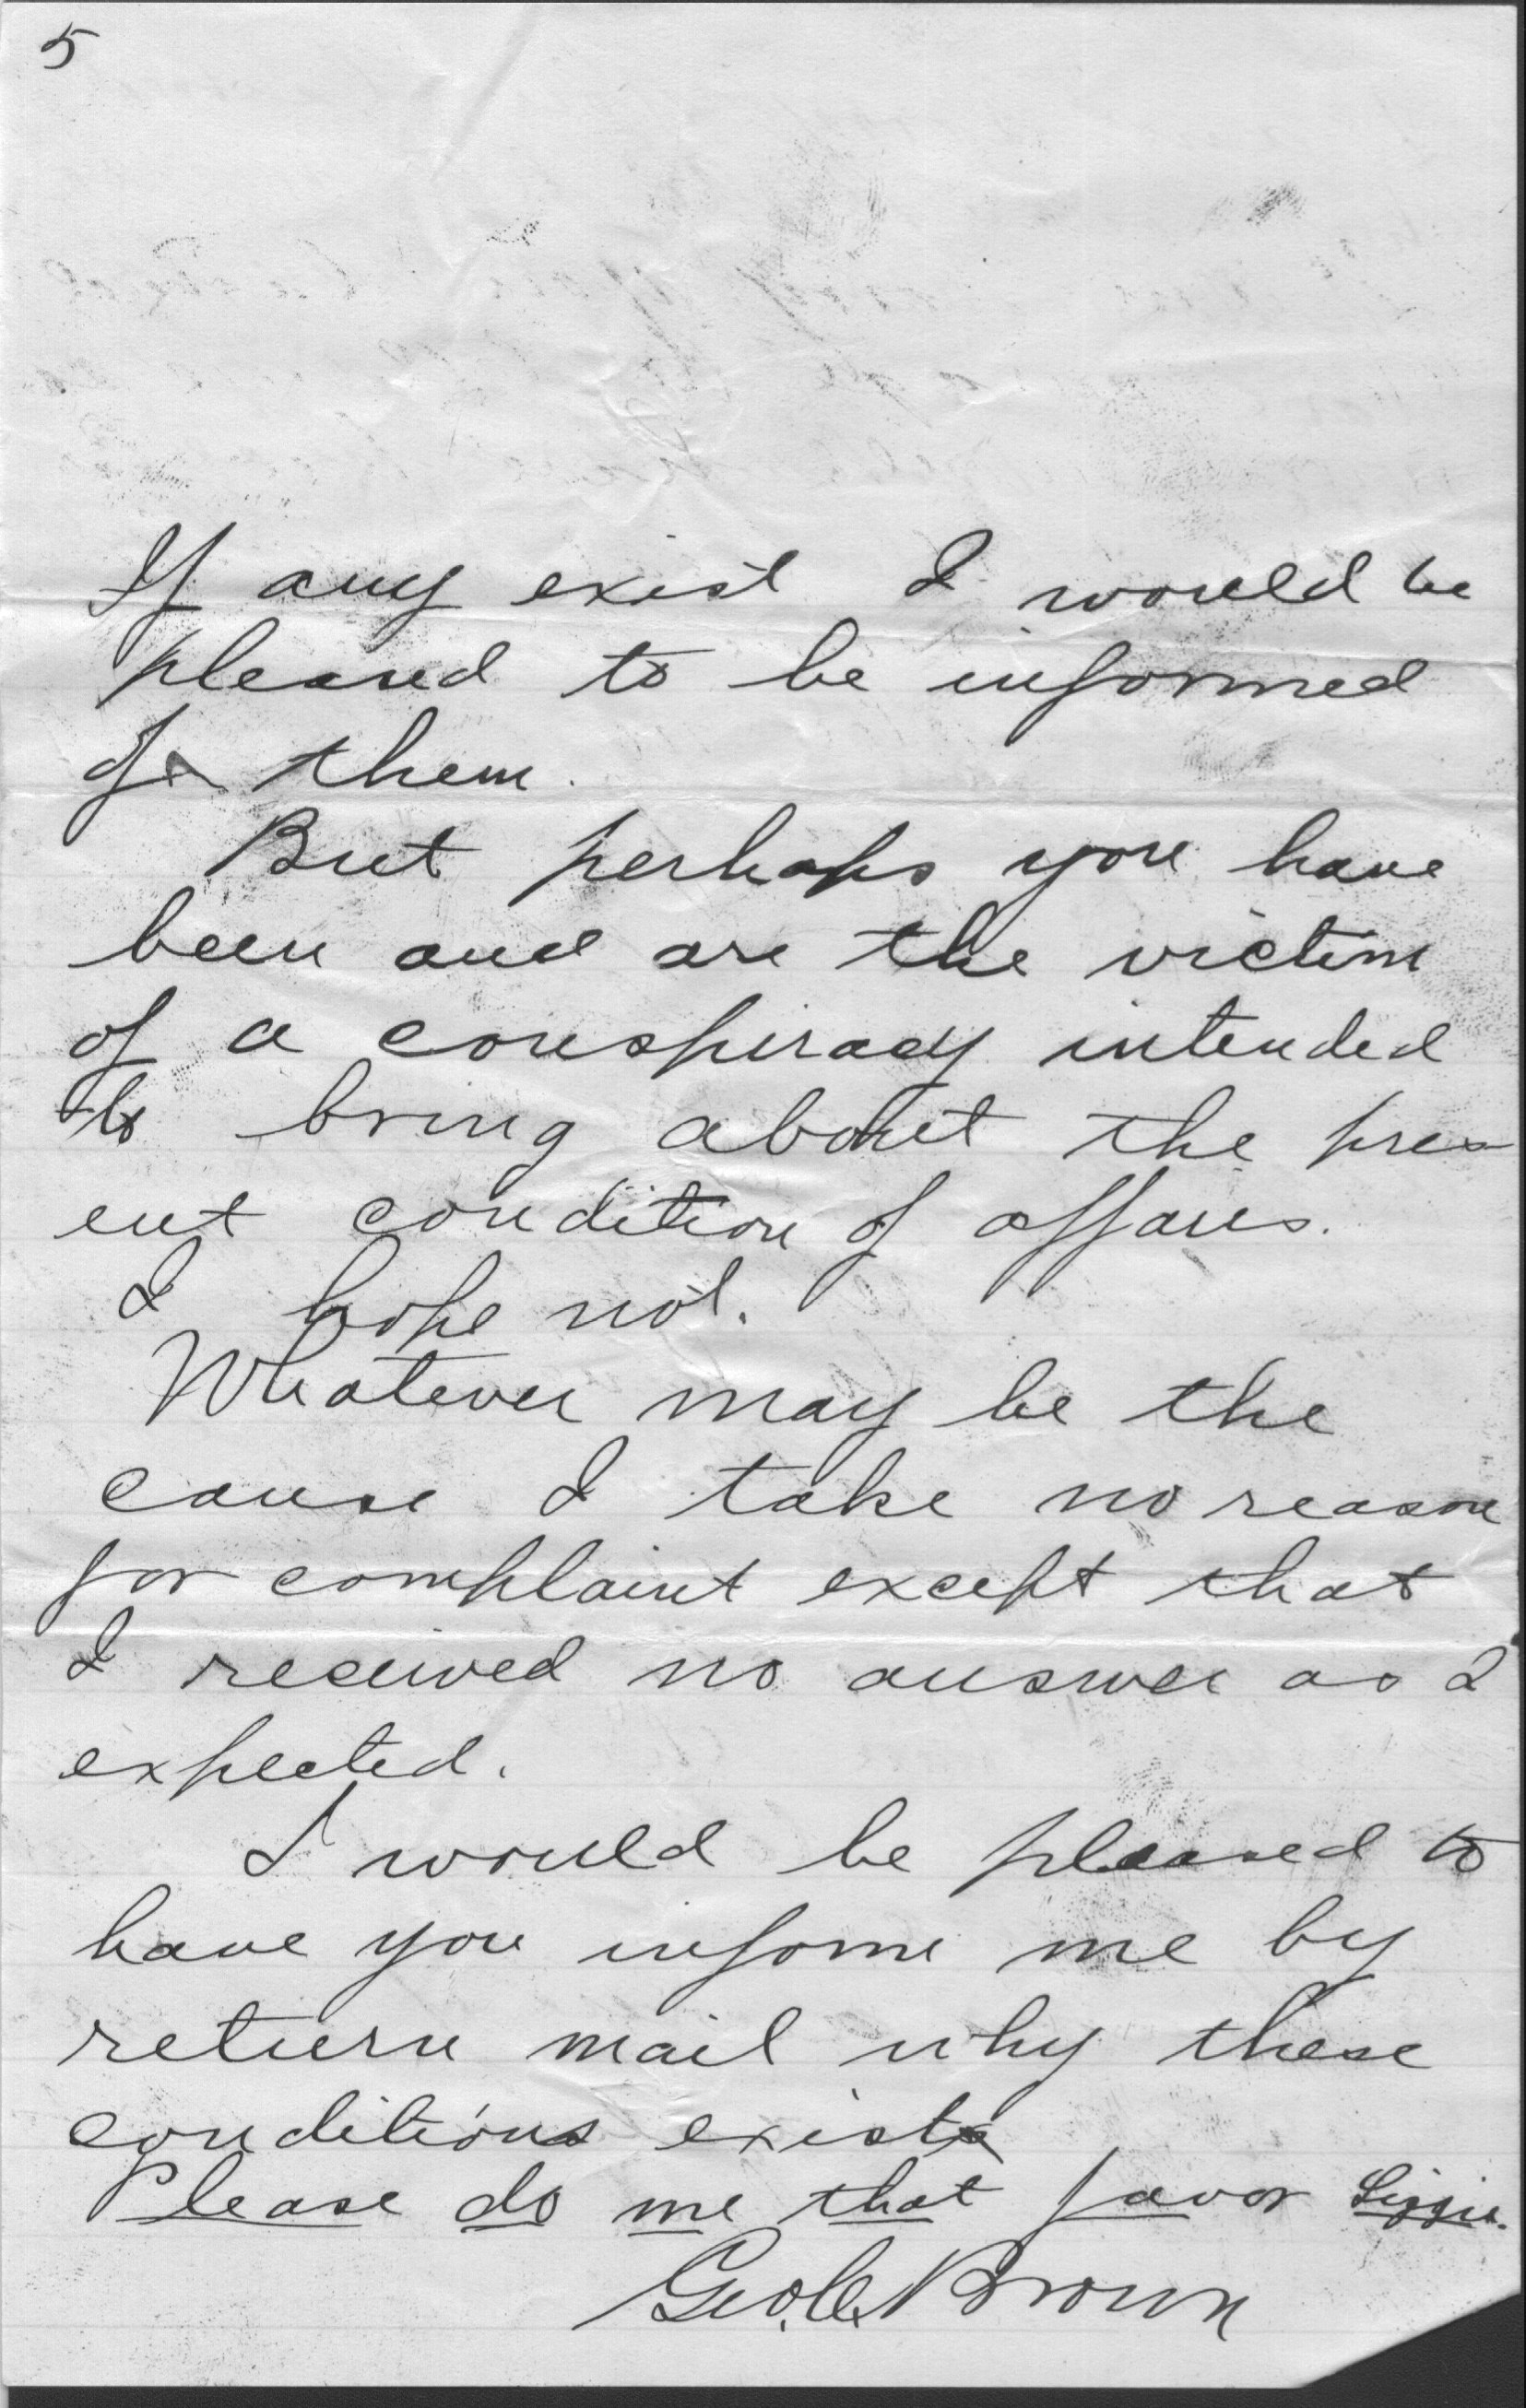 5
If any exist I would be
pleased to be informed
of them.
But perhaps you have
been and are the victim
of a conspiracy intended
to bring about the pres-
ent condition of affairs.
I hope not.
Whatever may be the
cause I take no reason
for complaint except that
I received no answer as I
expected.
I would be pleased to
have you inform me by
return mail why these
conditions exist
Please do me that favor Lizzie.
Geo. C. Brown